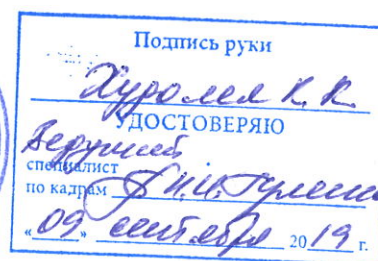 Подпись руки
К. К.
УДОСТОВЕРЯЮ
Ведущий
специалист
по кадрам
«09» сентября 2019 г.